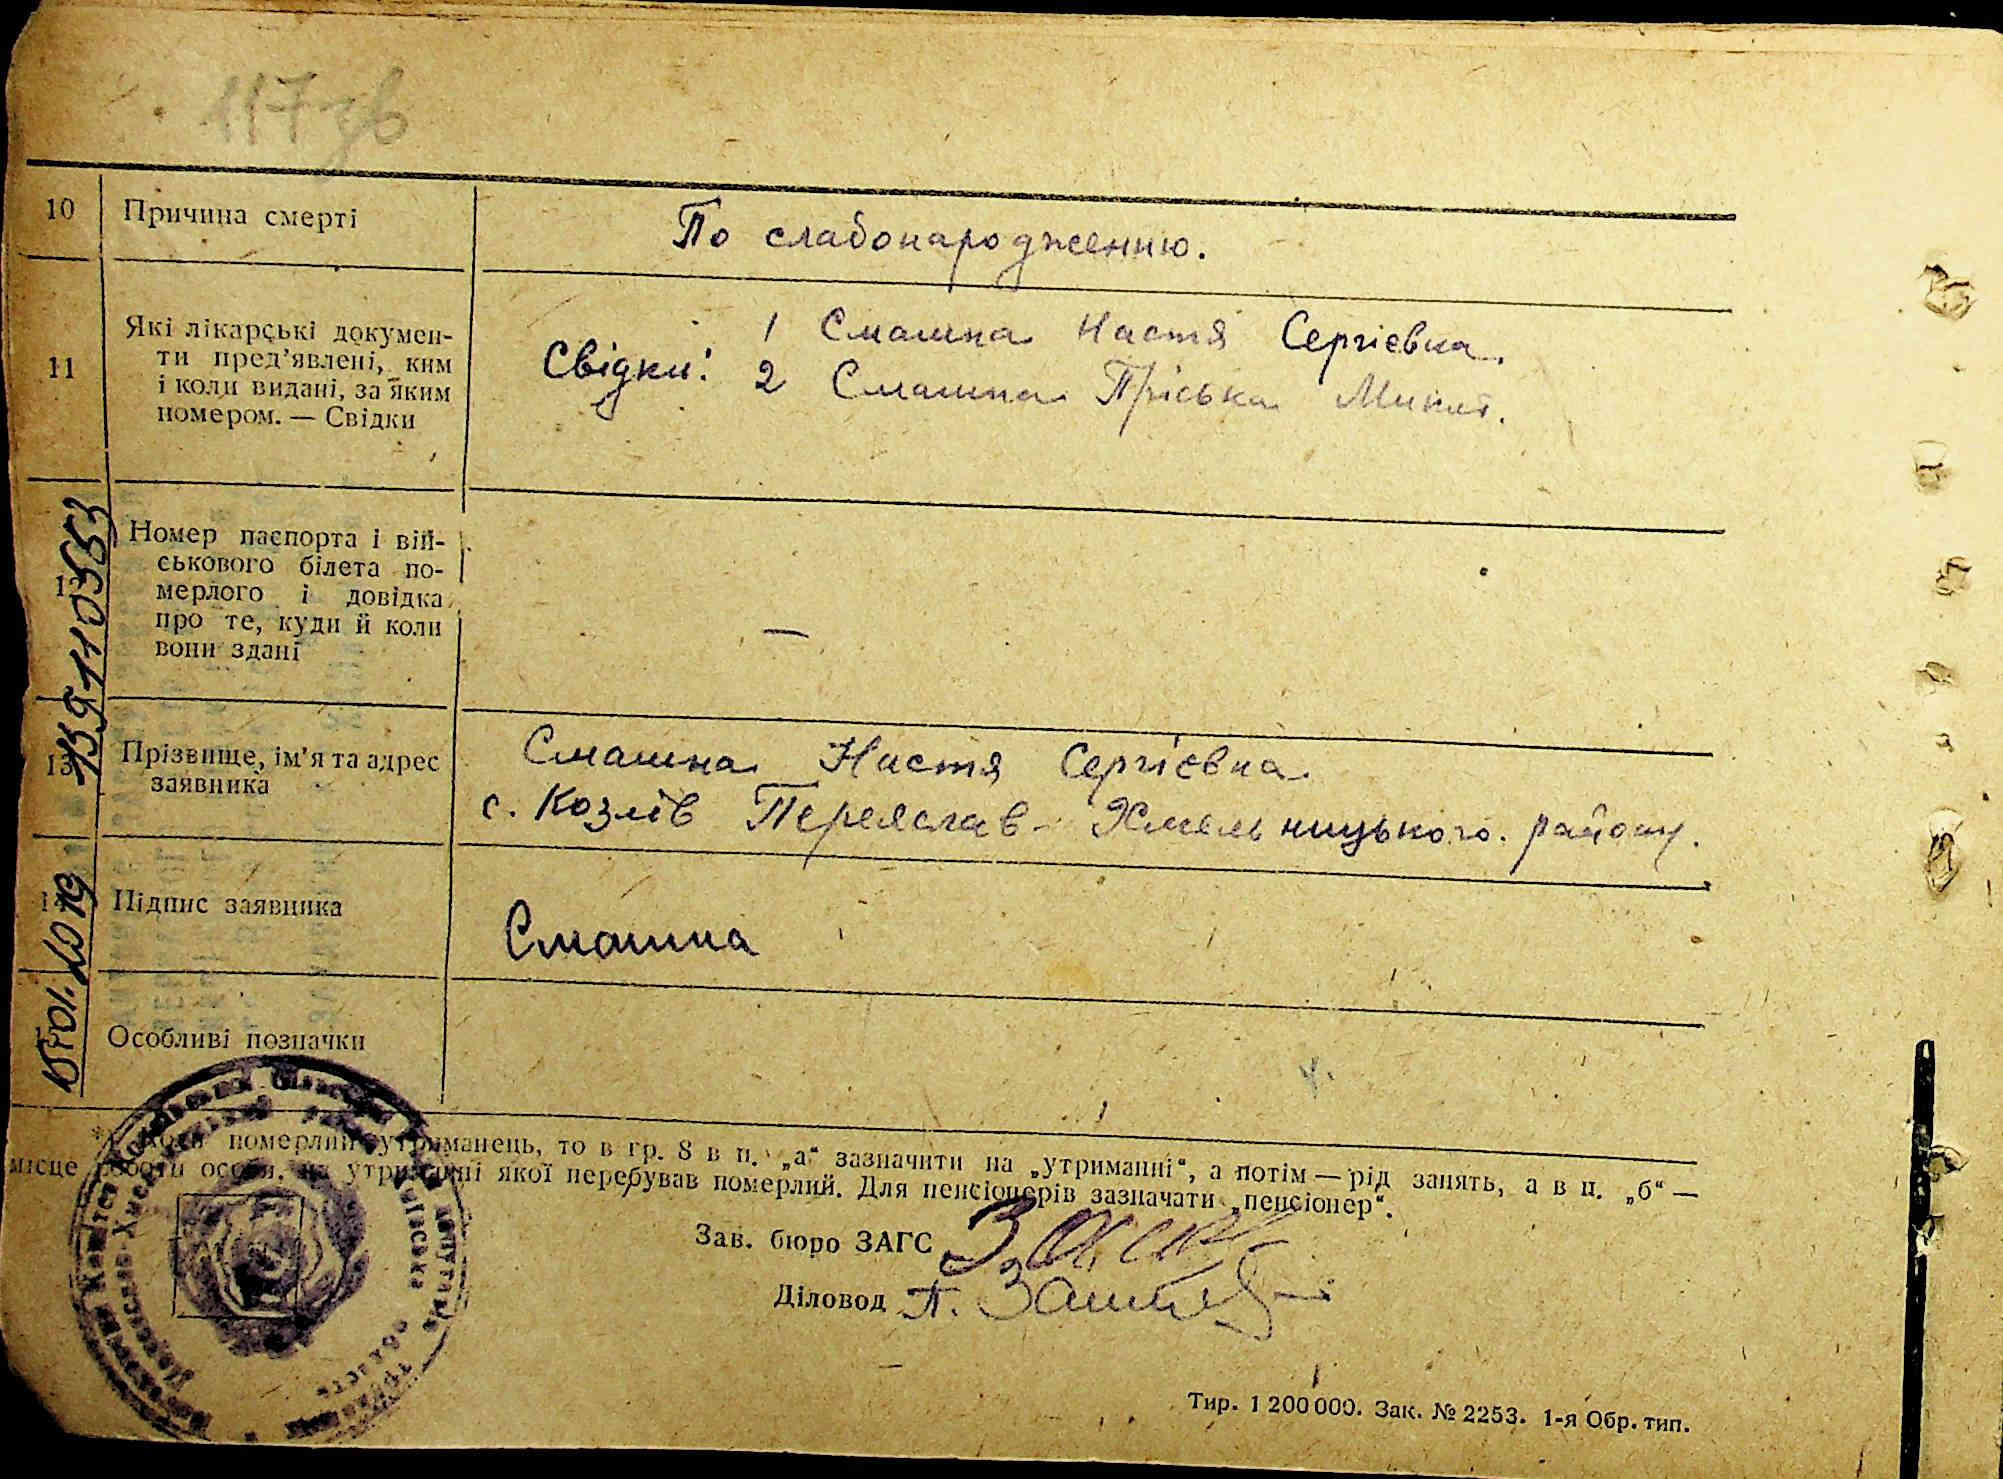 117 зв
10 Причина смерті
По слабонародженню.
11 Які лікарські докумен-
ти пред’явлені, ким
і коли видані, за яким
номером. — Свідки
Свідки: 1 Смашна Настя Сергієвна.
2 Смашна Пріська Микит.
12 Номер паспорта і вій-
ськового білета по-
мерлого і довідка
про те, куди й коли
вони здані
—
13 Прізвище, ім’я та адрес
заявника
Смашна Настя Сергієвна
с. Козлів Переяслав-Хмельницького району.
14 Підпис заявника
Смашна
Особливі позначки
померлий утриманець, то в гр. 8 в п. „а“ зазначити на „утриманні“, а потім — рід занять, а в п. „б“ —
місце роботи особи, на утриманні якої перебував померлий. Для пенсіонерів зазначати „пенсіонер“.
Зав. бюро ЗАГС
Діловод П.
Тир. 1 200 000. Зак. № 2253. 1-я Обр. тип.